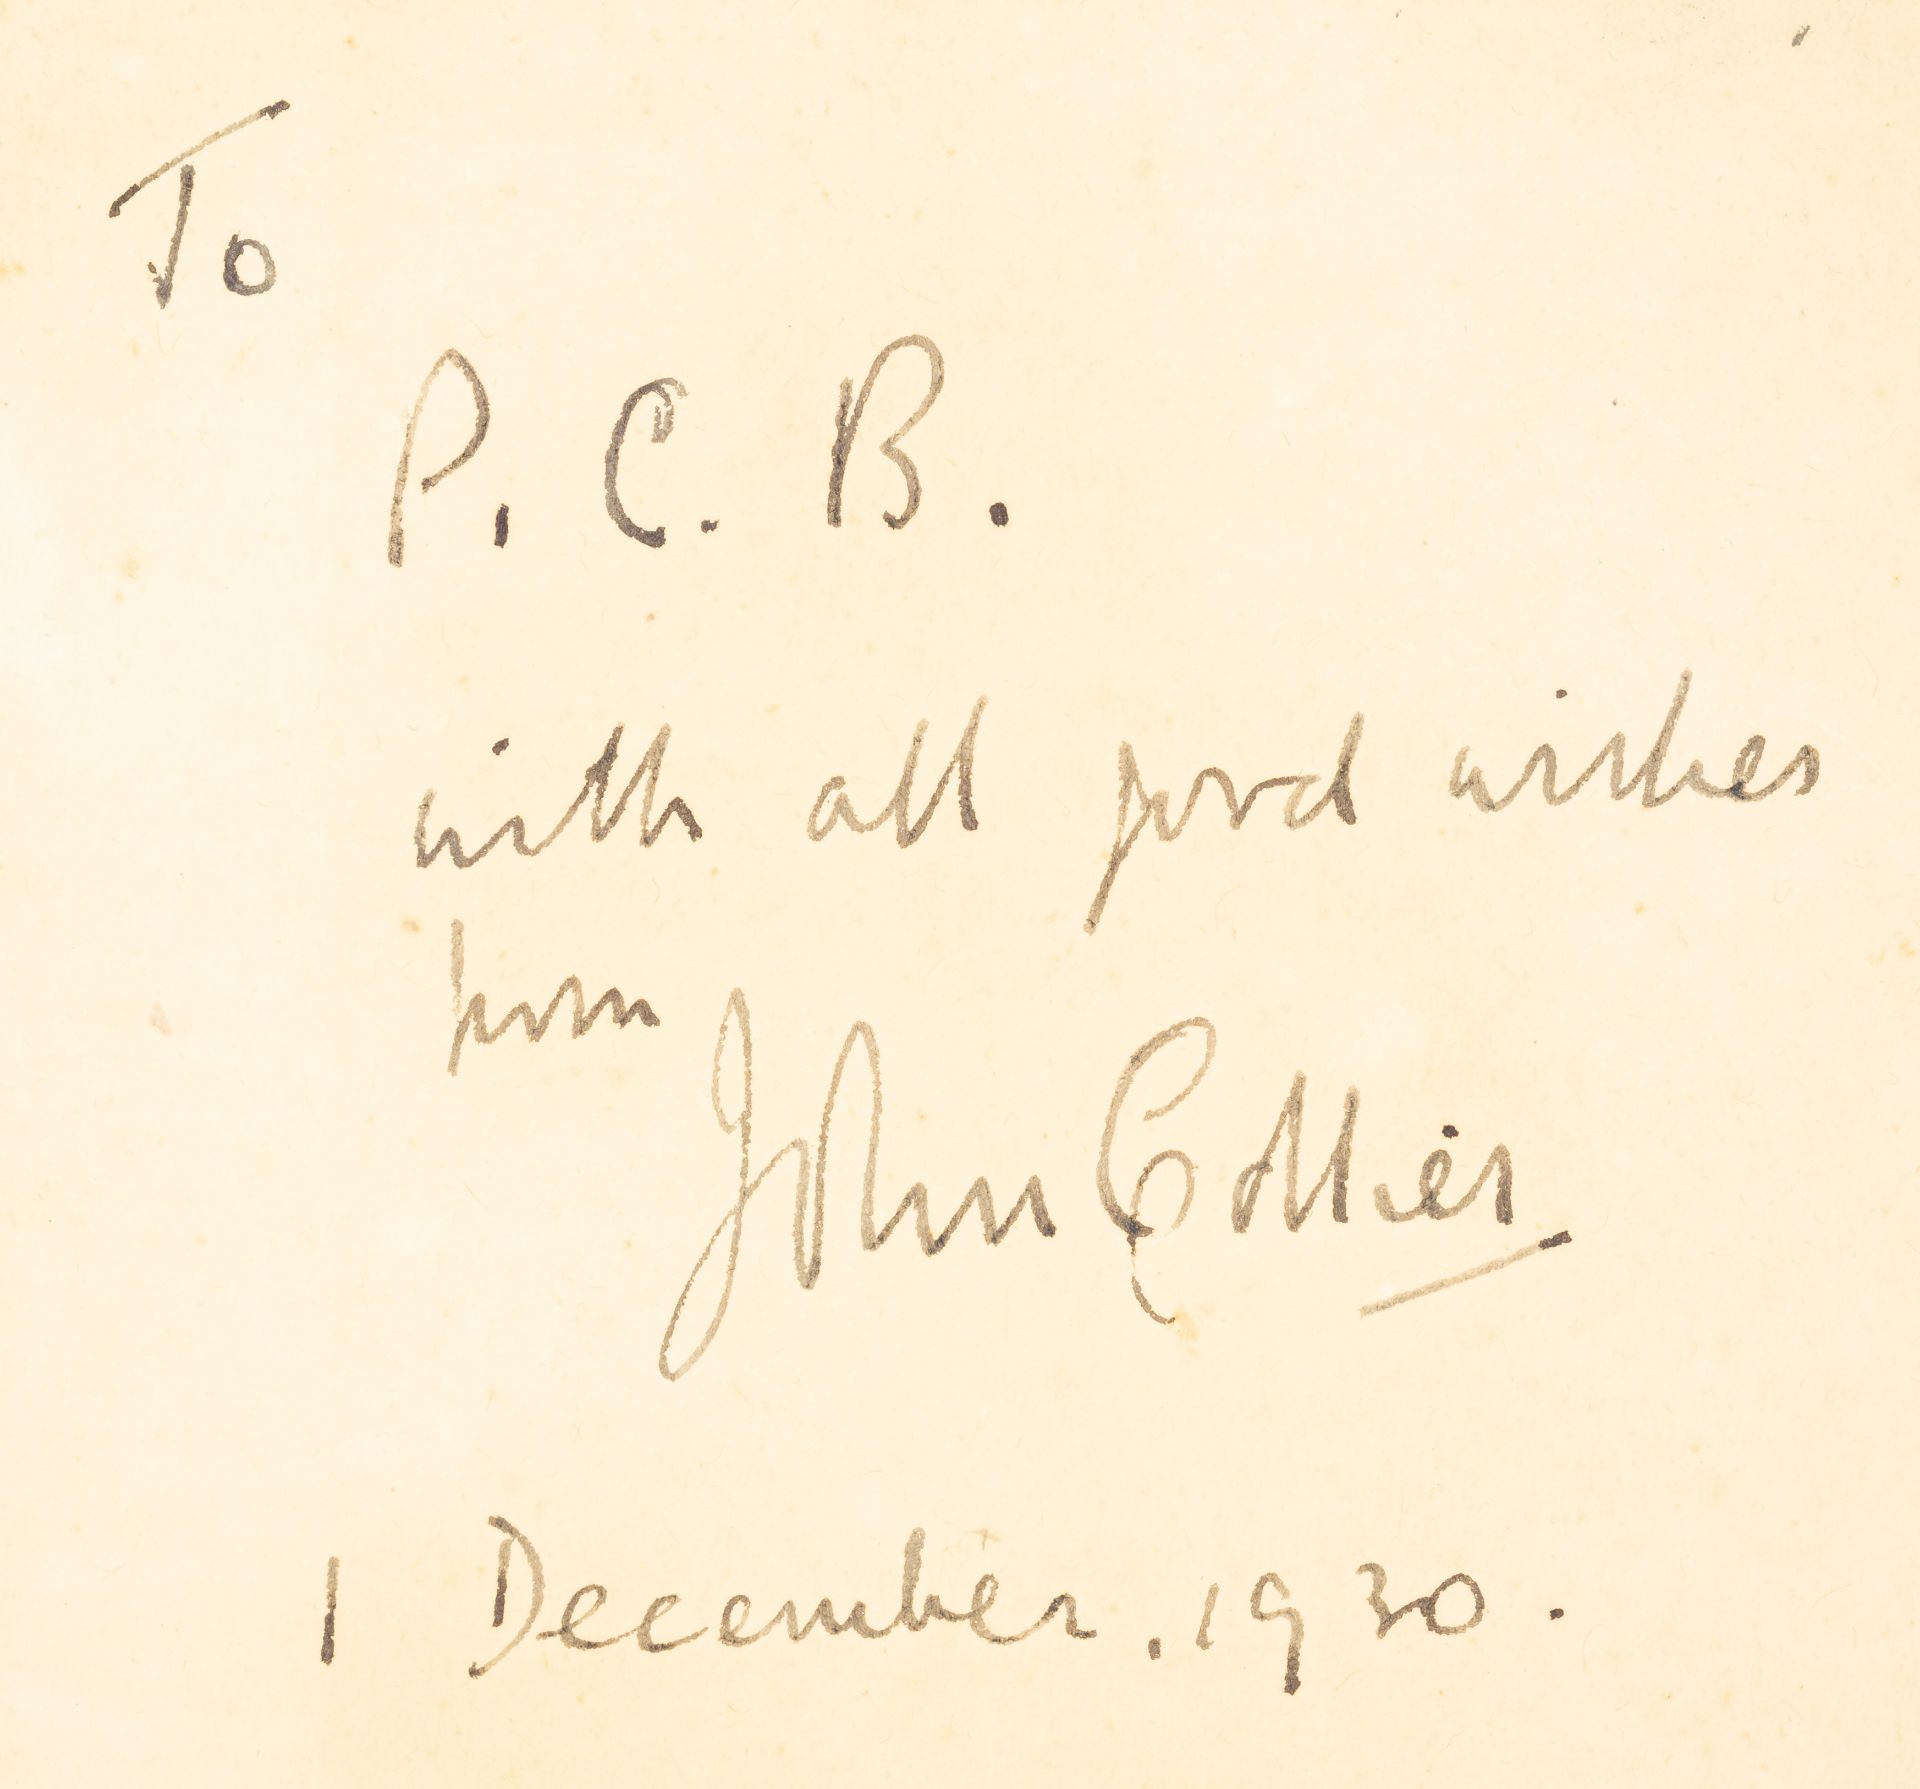 To
P. C. B.
with all good wishes
from
John Collier
1 December. 1930.